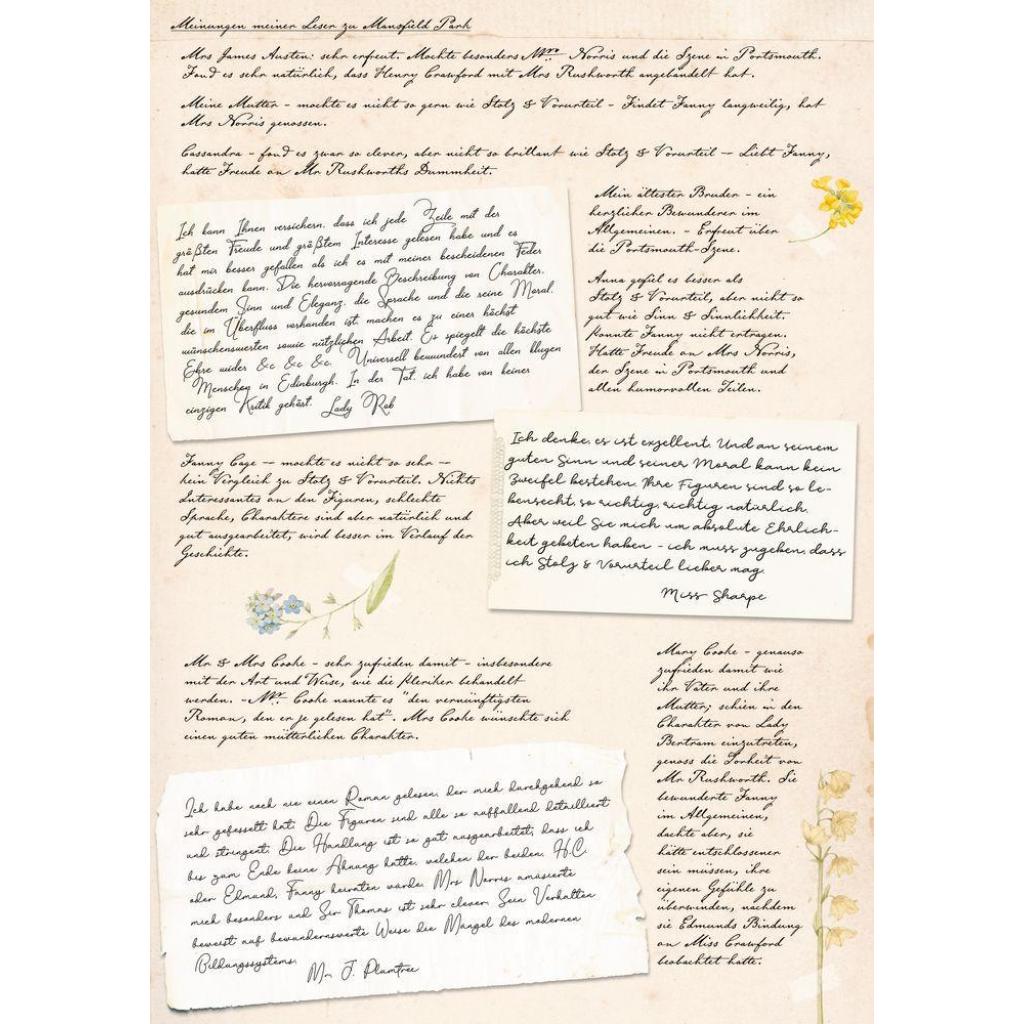 Meinungen meiner Leser zu Mansfield Park
Mrs James Austen: sehr erfreut. Mochte besonders Mrs. Norris und die Szene in Portsmouth.
Fand es sehr natürlich, dass Henry Crawford mit Mrs Rushworth angebandelt hat.
Meine Mutter - mochte es nicht so gern wie Stolz & Vorurteil - Findet Fanny langweilig, hat
Mrs Norris genossen.
Cassandra - fand es zwar so clever, aber nicht so brillant wie Stolz & Vorurteil - Liebt Fanny,
hatte Freude an Mr Rushworths Dummheit.
Ich kann Ihnen versichern, dass ich jede Zeile mit der
größten Freude und größtem Interesse gelesen habe und es
hat mir besser gefallen als ich es mit meiner bescheidenen Feder
ausdrücken kann. Die hervorragende Beschreibung von Charakter,
gesundem Sinn und Eleganz, die Sprache und die reine Moral,
die im Überfluss vorhanden ist, machen es zu einer höchst
wünschenswerten sowie nützlichen Arbeit. Es spiegelt die höchste
Ehre wider &c &c &c. Universell bewundert von allen klugen
Menschen in Edinburgh. In der Tat, ich habe von keiner
einzigen Kritik gehört. Lady Rob
Mein ältester Bruder - ein
herzlicher Bewunderer im
Allgemeinen. - Erfreut über
die Portsmouth-Szene.
Anna gefiel es besser als
Stolz & Vorurteil, aber nicht so
gut wie Sinn & Sinnlichkeit.
Konnte Fanny nicht ertragen.
Hatte Freude an Mrs Norris,
der Szene in Portsmouth und
allen humorvollen Teilen.
Fanny Cage -- mochte es nicht so sehr --
kein Vergleich zu Stolz & Vorurteil. Nichts
Interessantes an den Figuren, schlechte
Sprache, Charaktere sind aber natürlich und
gut ausgearbeitet, wird besser im Verlauf der
Geschichte.
Ich denke, es ist exzellent. Und an seinem
guten Sinn und seiner Moral kann kein
Zweifel bestehen. Ihre Figuren sind so le-
bensecht, so richtig, richtig natürlich.
Aber weil Sie mich um absolute Ehrlich-
keit gebeten haben - ich muss zugeben, dass
ich Stolz & Vorurteil lieber mag.
Miss Sharpe
Mr & Mrs Cooke - sehr zufrieden damit - insbesondere
mit der Art und Weise, wie die Kleriker behandelt
werden. - Mr. Cooke nannte es "den vernünftigsten
Roman, den er je gelesen hat". Mrs Cooke wünschte sich
einen guten mütterlichen Charakter.
Mary Cooke - genauso
zufrieden damit wie
ihr Vater und ihre
Mutter; schien in den
Charakter von Lady
Bertram einzutreten,
genoss die Torheit von
Mr Rushworth. Sie
bewunderte Fanny
im Allgemeinen,
dachte aber, sie
hätte entschlossener
sein müssen, ihre
eigenen Gefühle zu
überwinden, nachdem
sie Edmunds Bindung
an Miss Crawford
beobachtet hatte.
Ich habe noch nie einen Roman gelesen, der mich durchgehend so
sehr gefesselt hat. Die Figuren sind alle so auffallend detailliert
und stringent. Die Handlung ist so gut ausgearbeitet, dass ich
bis zum Ende keine Ahnung hatte, welchen der beiden, H.C.
oder Edmund, Fanny heiraten würde. Mrs Norris amüsierte
mich besonders und Sir Thomas ist sehr clever. Sein Verhalten
beweist auf bewundernswerte Weise die Mängel des modernen
Bildungssystems.
Mr J. Plumtree